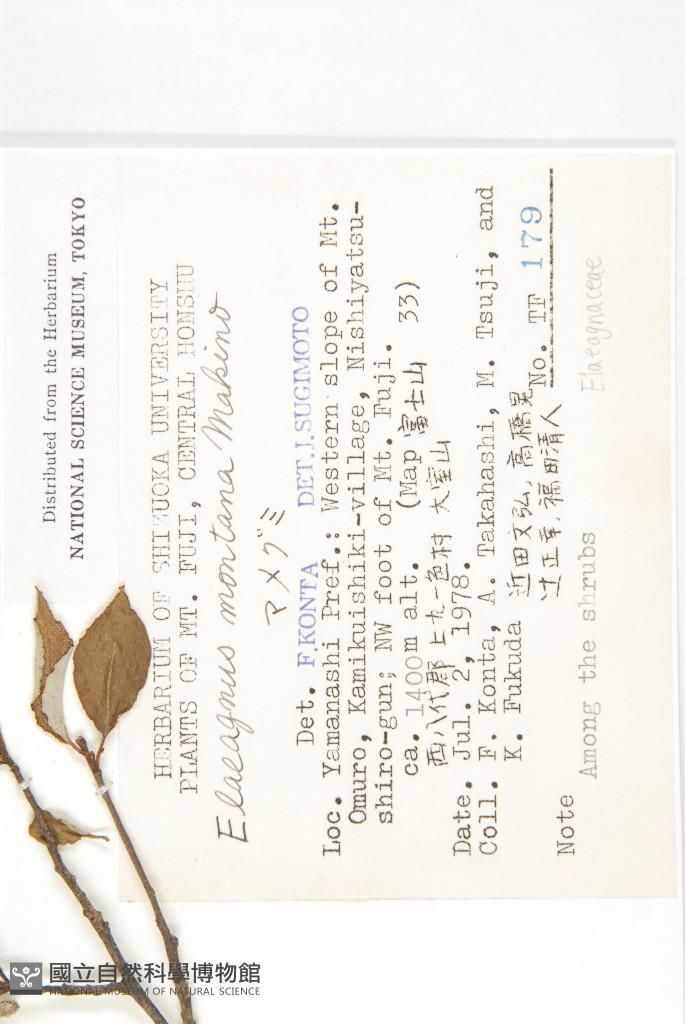 Distributed from the Herbarium
NATIONAL SCIENCE MUSEUM, TOKYO
HERBARIUM OF SHIZUOKA UNIVERSITY
PLANTS OF MT. FUJI, CENTRAL HONSHU
Elaeagnus montana Makino
マメグミ
Det. F.KONTA DET.J.SUGIMOTO
Loc. Yamanashi Pref.: Western slope of Mt.
Omuro, Kamikuishiki-village, Nishiyatsu-
shiro-gun; NW foot of Mt. Fuji.
ca. 1400m alt. (Map 富士山 33)
西八代郡 上九一色村 大室山
Date. Jul. 2, 1978.
Coll. F. Konta, A. Takahashi, M. Tsuji, and
K. Fukuda 近田文弘, 高橋晃
辻正幸, 福田清人
No. TF 179
Note Among the shrubs
Elaeagnaceae
國立自然科學博物館
NATIONAL MUSEUM OF NATURAL SCIENCE